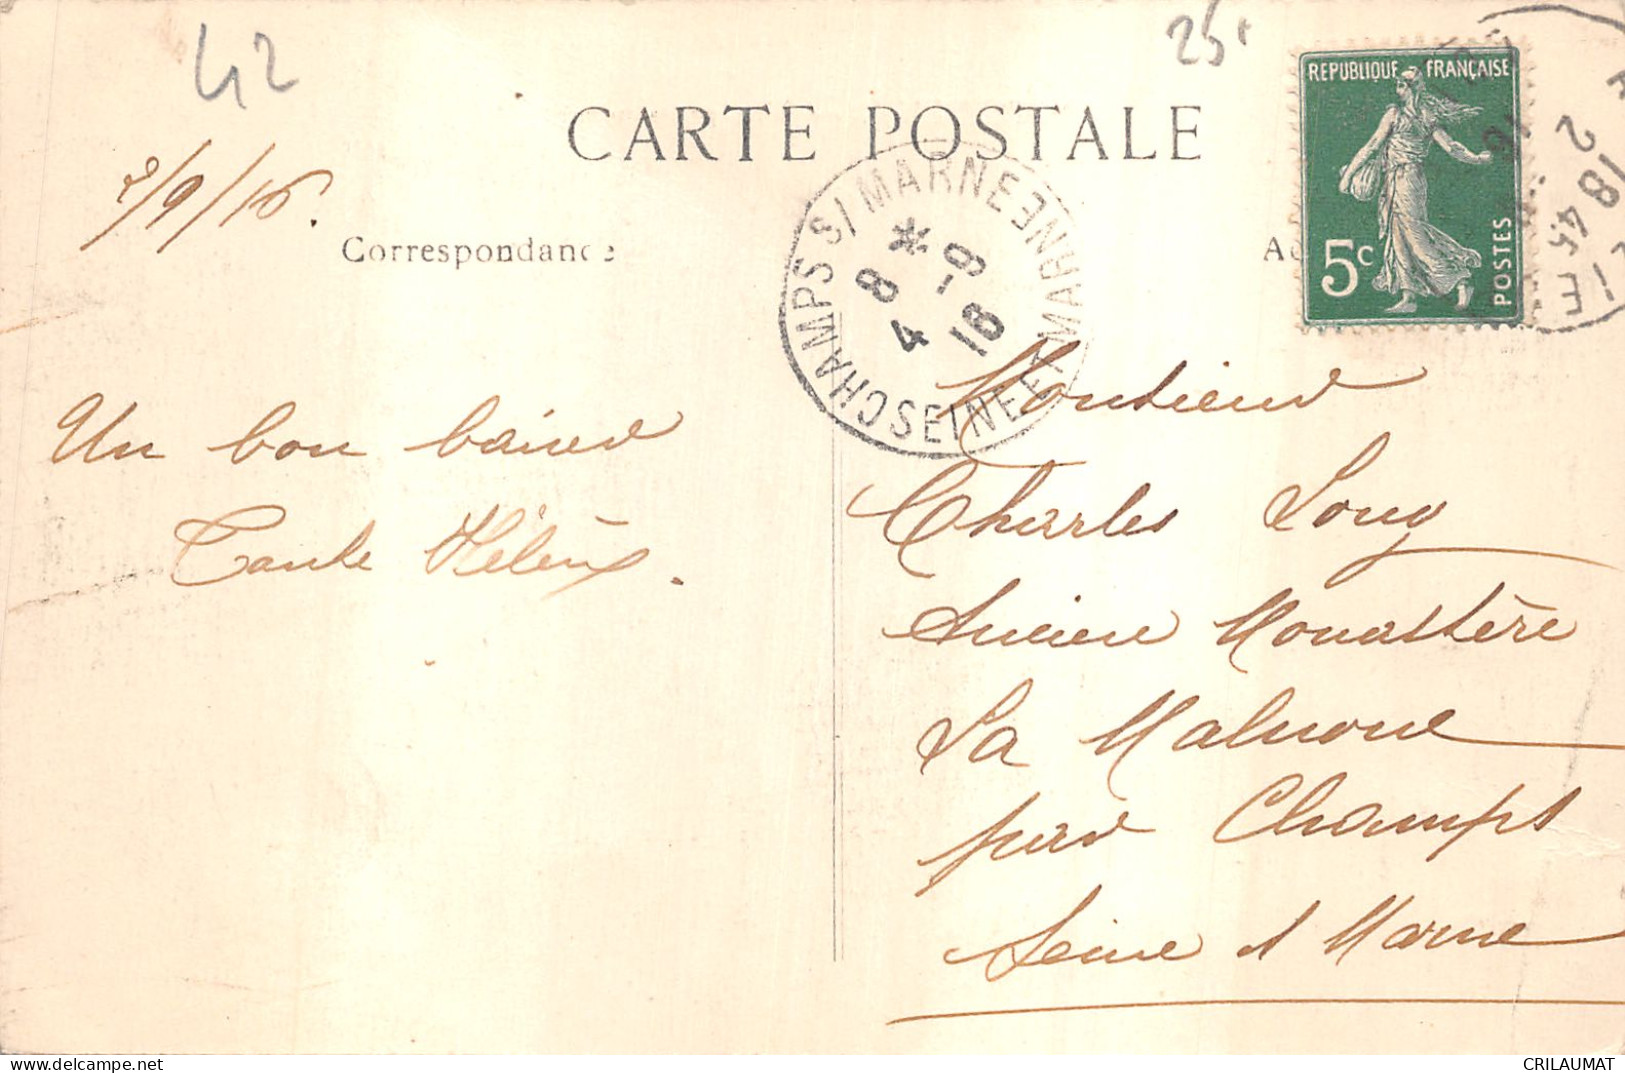 42
25
CARTE POSTALE
REPUBLIQUE FRANÇAISE
5c
POSTES
2 18 45
16
/9/16.
Correspondance
CHAMPS S/ MARNE
SEINE ET MARNE
* 8 - 9
8 4 16
Un bon baiser
Tante Hélène.
Monsieur
Charles Louy
Ancien Monastère
La Malnoue
par Champs
Seine et Marne
CRILAUMAT